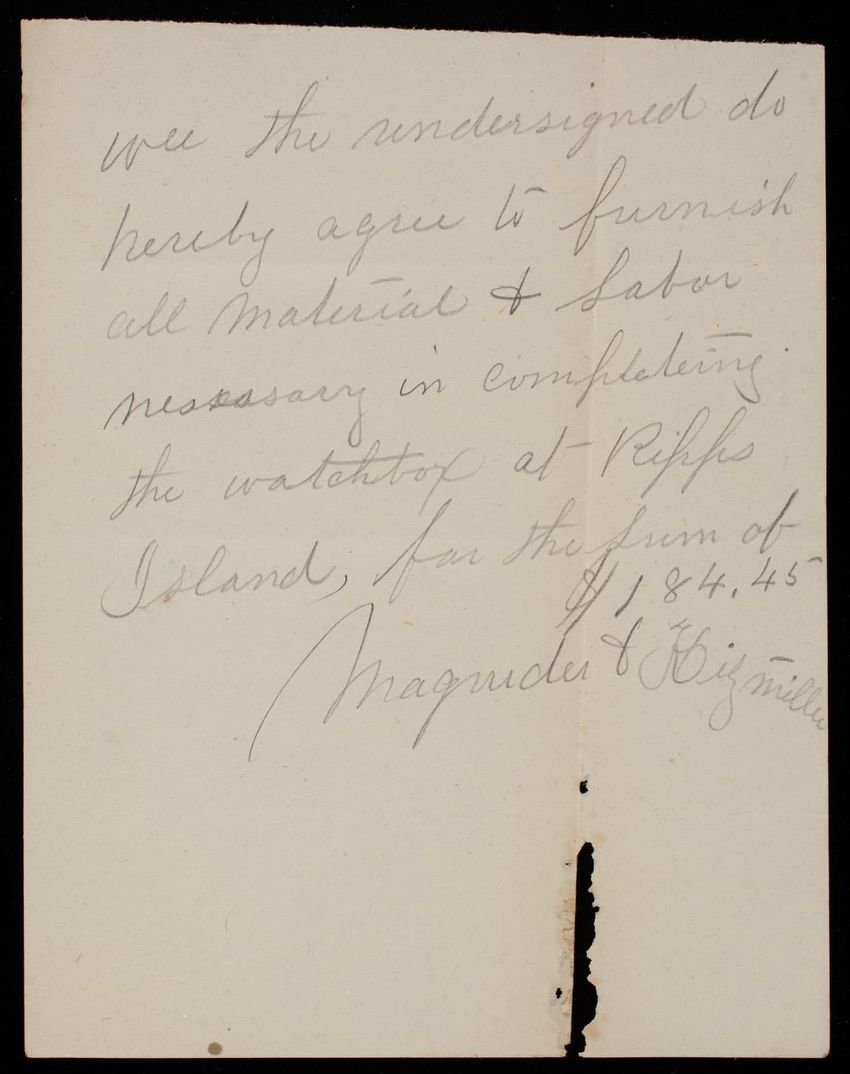 wee the undersigned do
hereby agree to furnish
all Material & Labor
nessssary in completeing
the watchbox at Ripps
Island, for the sum of
$184.45
Magruder & Kizmiller